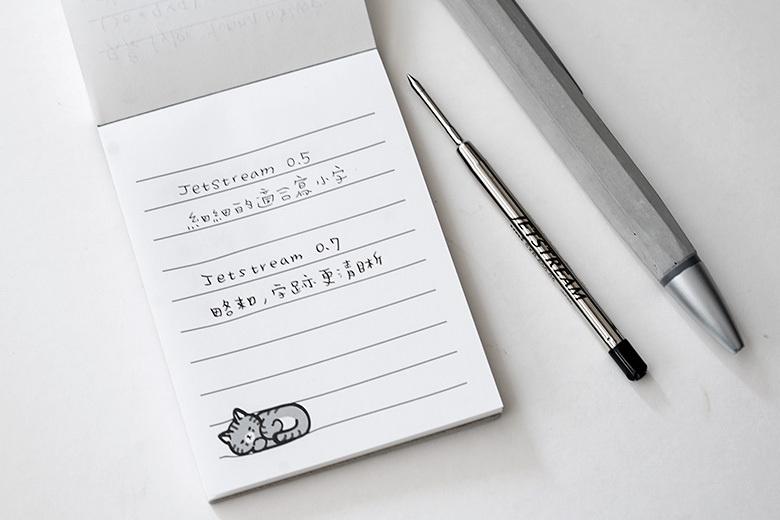 Jetstream 0.5
細細的適合寫小字
Jetstream 0.7
略粗，字跡更清晰
JETSTREAM